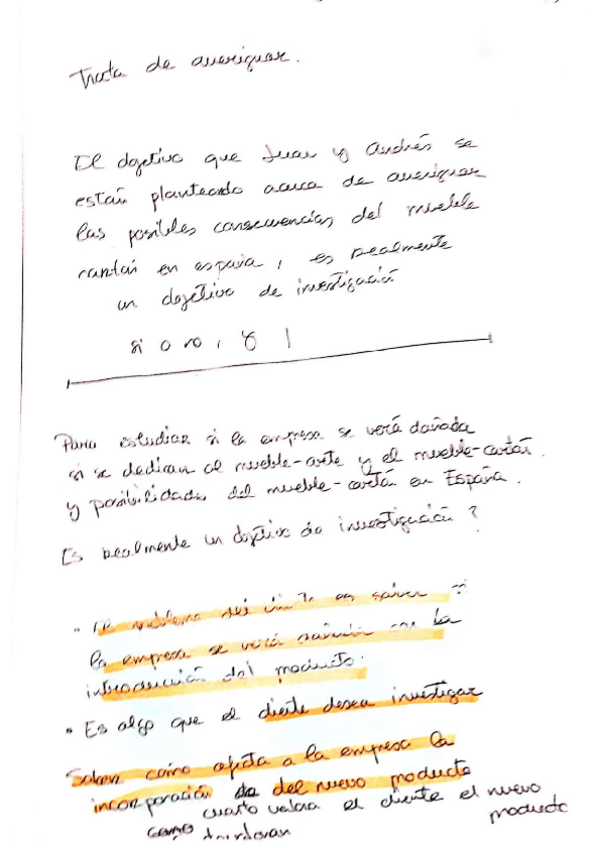 Trata de averiguar.
El objetivo que Juan y Andrés se
están planteando acerca de averiguar
las posibles consecuencias del mueble
cartón en españa, es realmente
un objetivo de investigación
si o no, y
Para estudiar si la empresa se verá dañada
si se dedican al mueble-arte y el mueble-cartón.
y posibilidades del mueble-cartón en España.
Es realmente un objetivo de investigación?
• El problema del es saber si
la empresa se verá con la
introducción del producto.
• Es algo que el cliente desea investigar
Saber cómo afecta a la empresa la
incorporación de del nuevo producto
cuanto valora el cliente el nuevo
producto
como